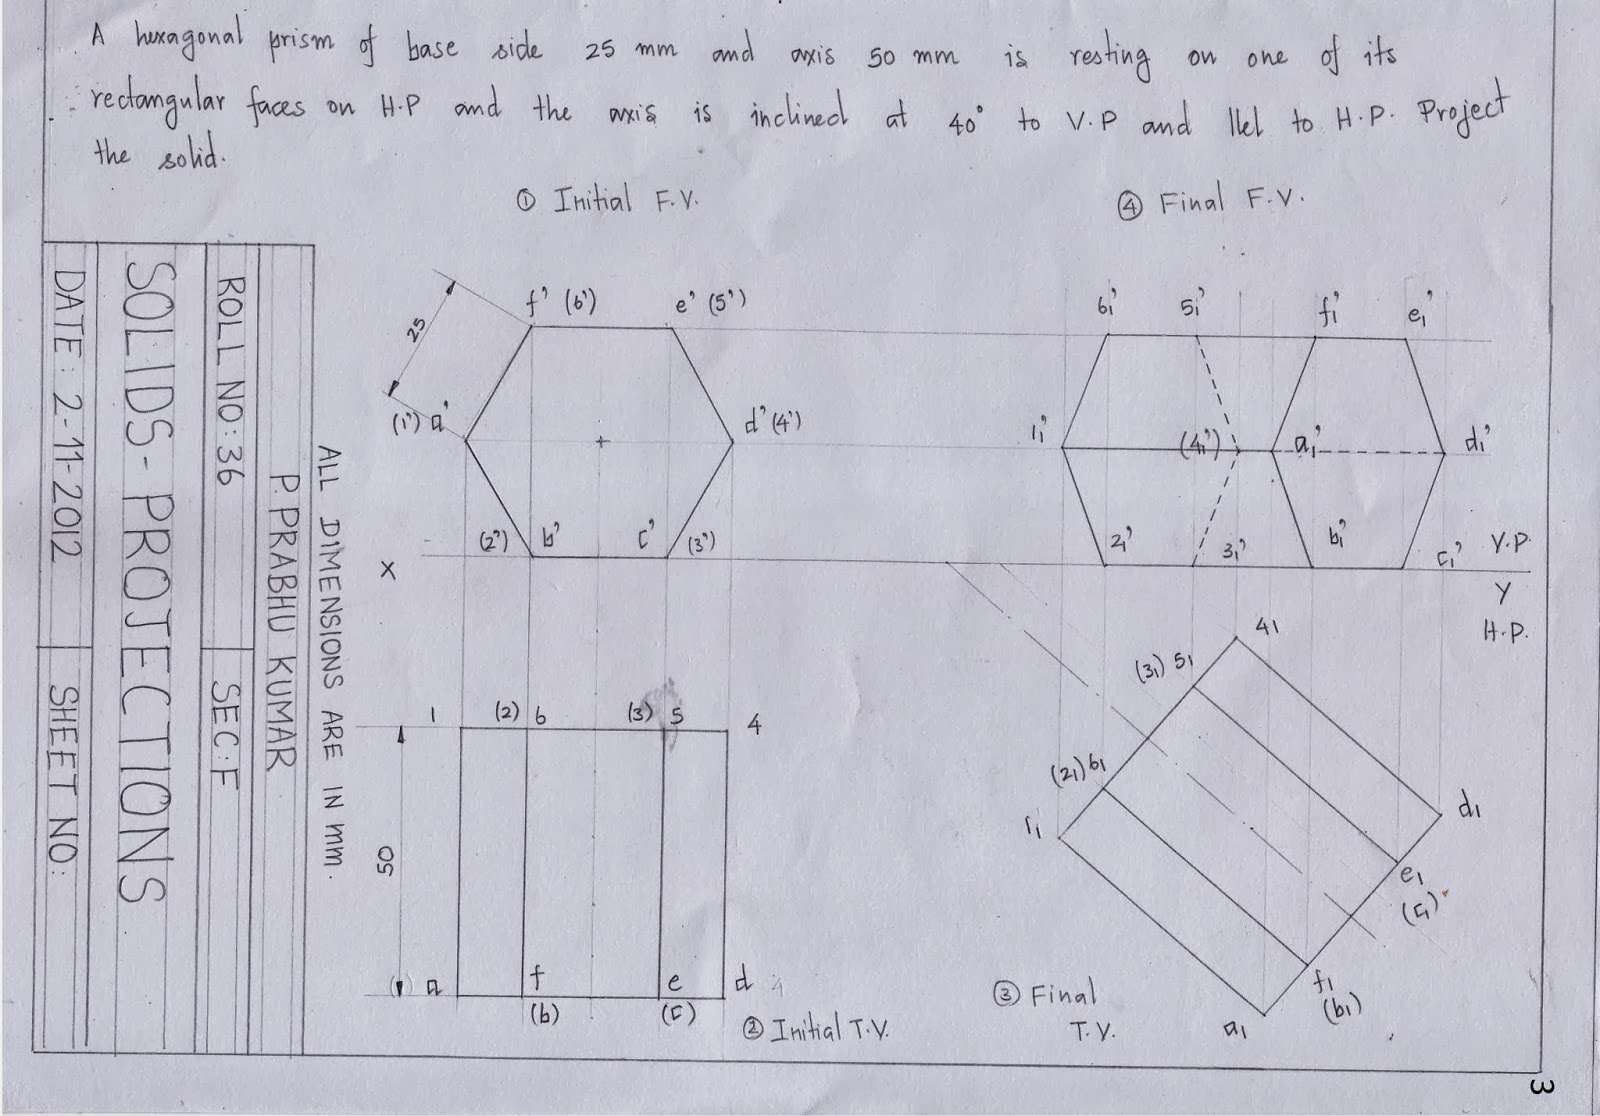 A hexagonal prism of base side 25 mm and axis 50 mm is resting on one of its
rectangular faces on H.P and the axis is inclined at 40° to V.P and llel to H.P. Project
the solid.
① Initial F.V.
④ Final F.V.
f' (6') e' (5')
25
(1') a'
d' (4')
(2') b' c' (3')
X
6₁' 5₁' f₁' e₁'
1₁' (4₁') a₁' d₁'
2₁' 3₁' b₁' c₁'
V.P.
Y
H.P.
1 (2) 6 (3) 5 4
50
a f e d 4
(b) (c)
② Initial T.V.
4₁
(3₁) 5₁
(2₁) 6₁
1₁
d₁
e₁
(c₁)
f₁
(b₁)
a₁
③ Final
T.V.
ALL DIMENSIONS ARE IN mm.
P. PRABHU KUMAR
ROLL NO: 36 SEC: F
SOLIDS - PROJECTIONS
DATE: 2-11-2012 SHEET NO:
3